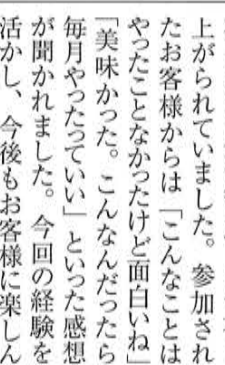 上がられていました。参加され
たお客様からは「こんなことは
やったことなかったけど面白いね」
「美味かった。こんなんだったら
毎月やったっていい」といった感想
が聞かれました。今回の経験を
活かし、今後もお客様に楽しん